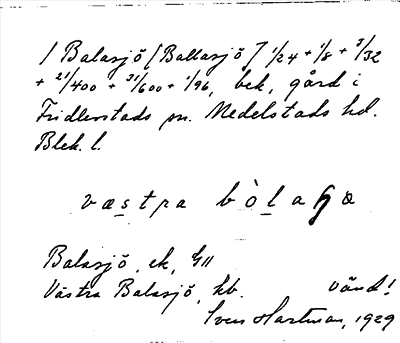 / Balasjö [Ballasjö] 1/24 + 1/8 + 3/32
+ 21/400 + 31/600 + 1/96, bek, gård i
Fridlevstads sn. Medelstads hd.
Blek. l.
væstra bòla
Balasjö, ek, GII
Västra Balasjö, kb. vänd!
Sven Hartman, 1929